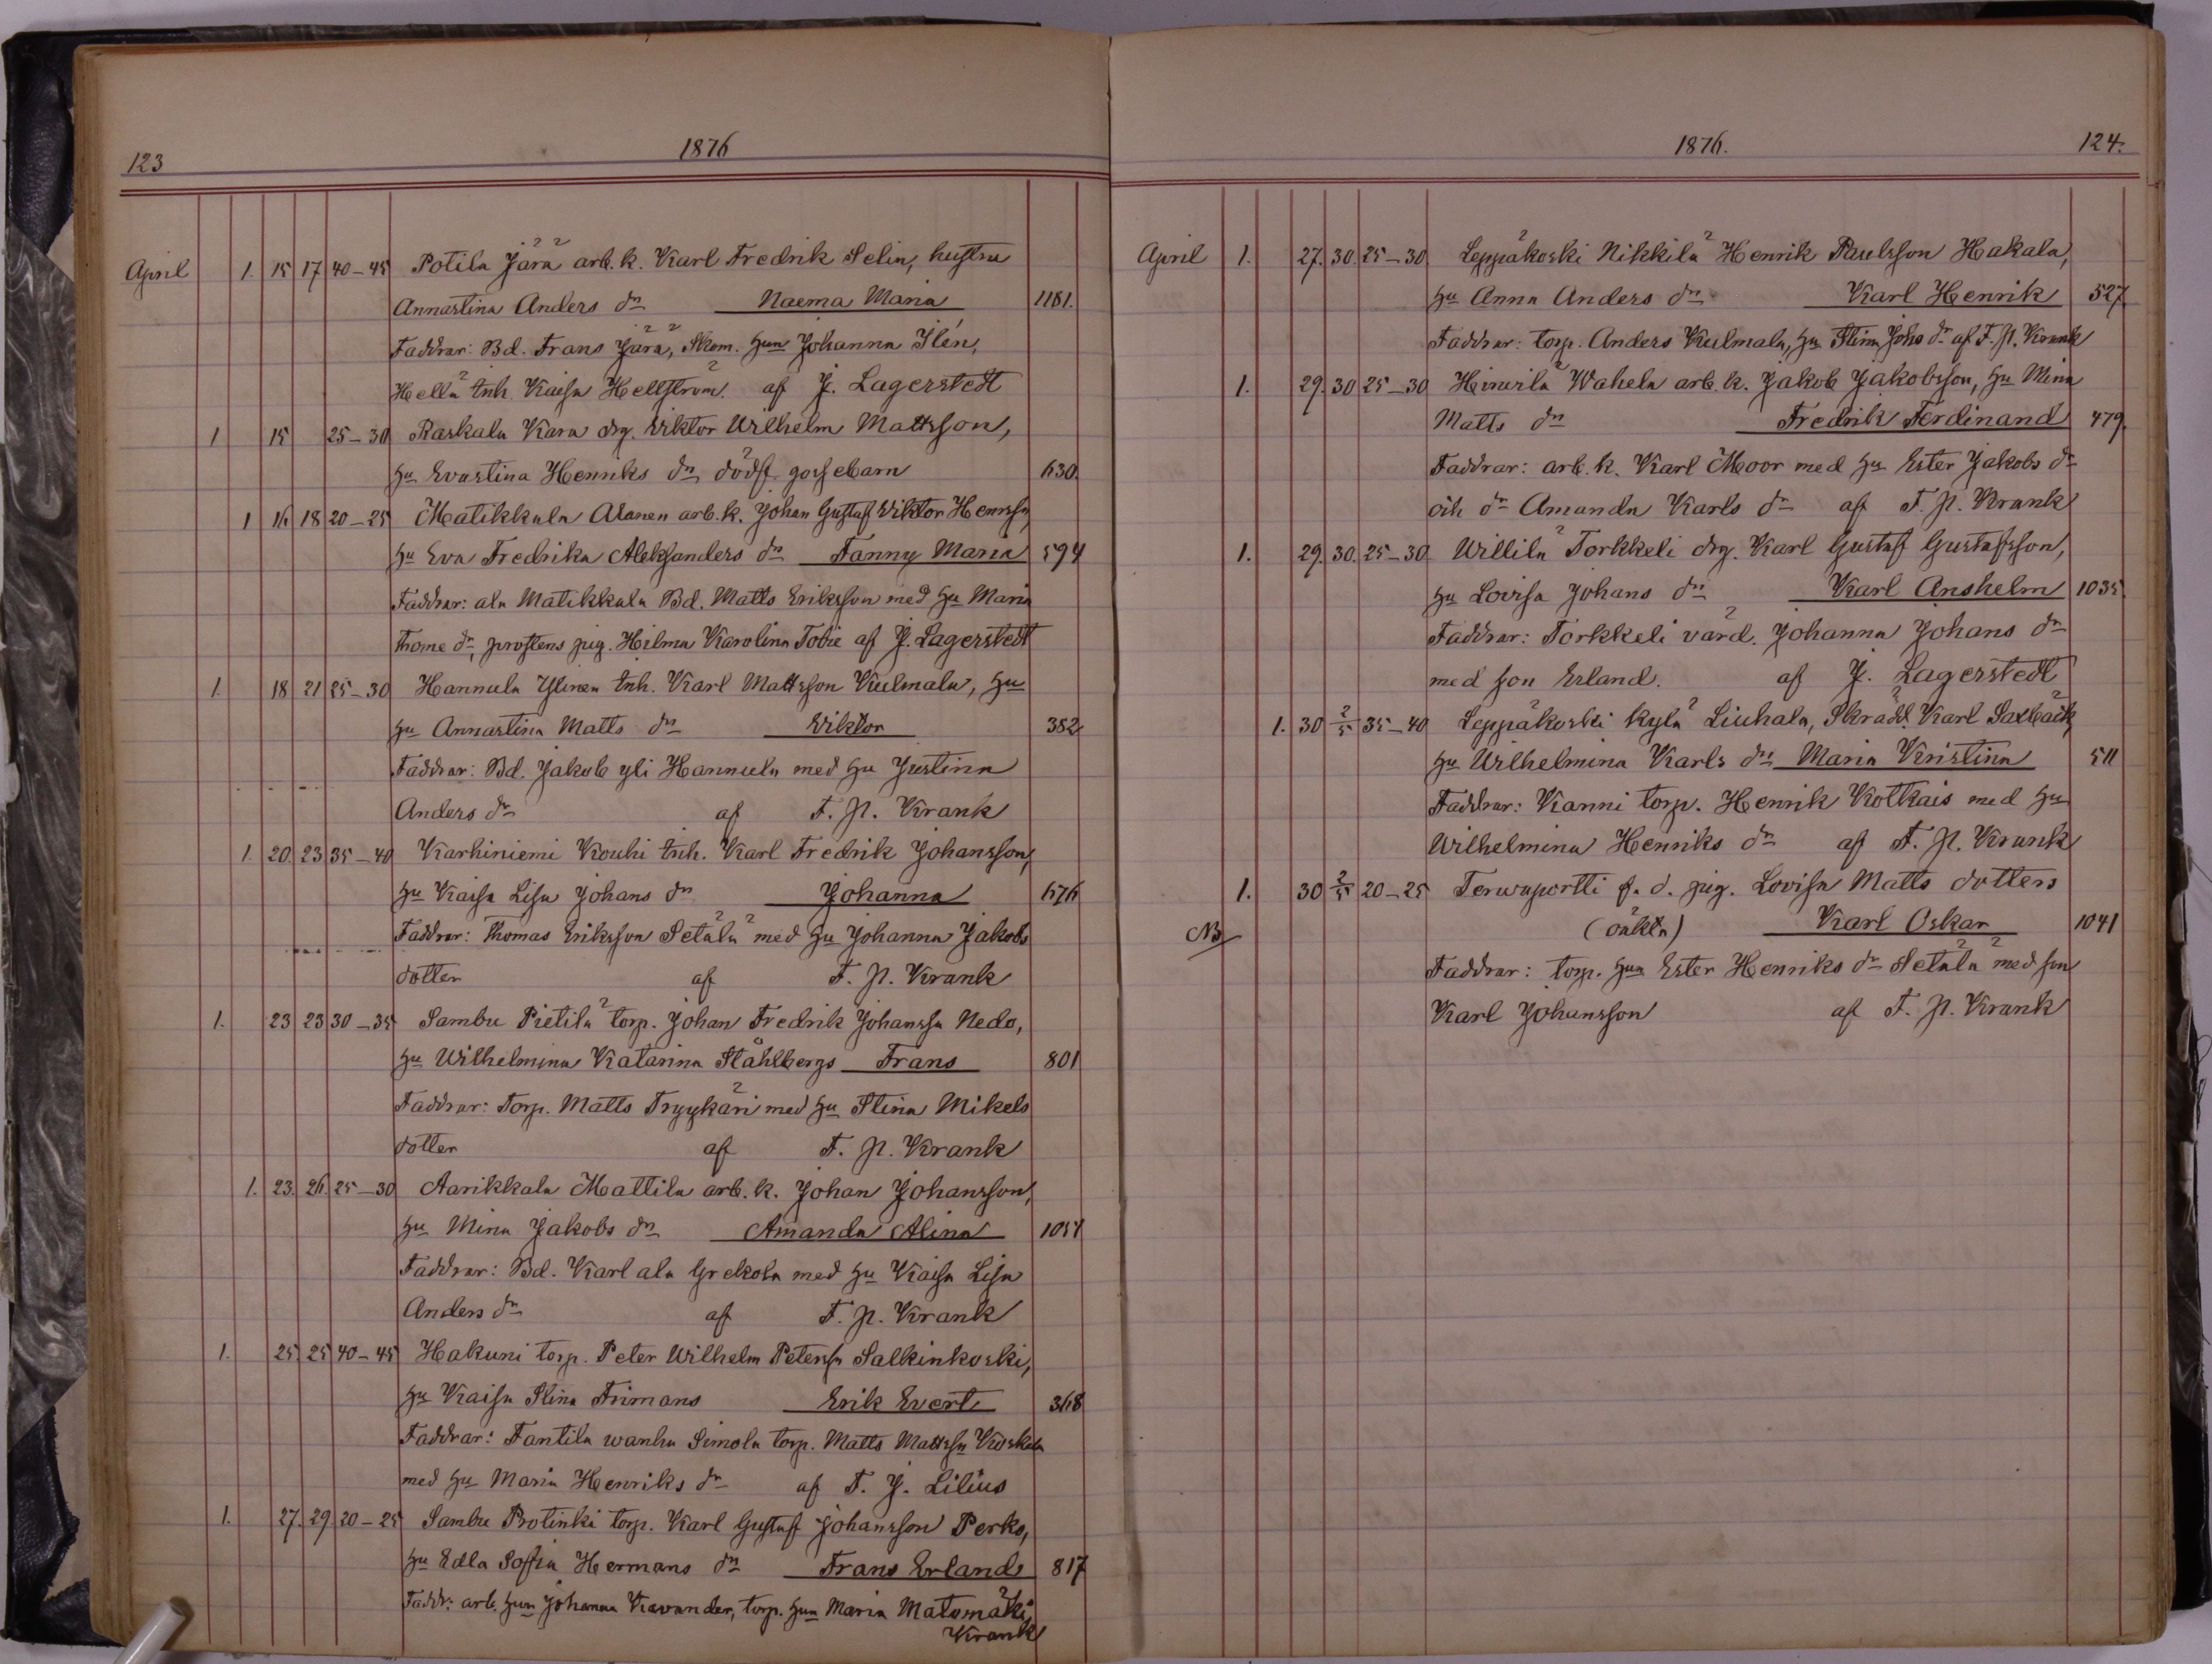 123 1876
April 1. 15 17 40-45 Potila Järä arb.k. Karl Fredrik Selin, hustru
Annastina Anders dr Naema Maria 1181.
Faddrar: Bd. Frans Järä, Skom. hun Johanna Ilén,
Hellä inh. Kaisa Hellström. af J. Lagerstedt
1 15 25-30 Raskala Kara drg. Viktor Wilhelm Mattsson,
hu Evastina Henriks dr, dödf. gossebarn 630.
1 16 18 20-25 Matikkala Alanen arb.k. Johan Gustaf Viktor Henrssn,
hu Eva Fredrika Aleksanders dr Fanny Maria 594
Faddrar: ala Matikkala Bd. Matts Eriksson med hu Maria
Thome dr, prostens pig. Hilma Karolina Tobie af J. Lagerstedt
1. 18 21 25-30 Hannula Ylinen inh. Karl Mattsson Kulmala, hu
hu Annastina Matts dr Viktor 382
Faddrar: Bd. Jakob yli Hannula med hu Justina
Anders dr af F. P. Krank
1. 20. 23 35-40 Karhiniemi Kouhi inh. Karl Fredrik Johansson,
hu Kaisa Lisa Johans dr Johanna 676
Faddrar: Thomas Eriksson Setälä med hu Johanna Jakobs
dotter af F. P. Krank
1. 23 23 30-35 Sambu Pietilä torp. Johan Fredrik Johanssn Nedo,
hu Wilhelmina Katarina Ståhlbergs Frans 801
Faddrar: Torp. Matts Tryykäri med hu Stina Mikels
dotter af F. P. Krank
1. 23. 26. 25-30 Aarikkala Mattila arb.k. Johan Johansson,
hu Mina Jakobs dr Amanda Alina 1054
Faddrar: Bd. Karl ala Grekola med hu Kaisa Lisa
Anders dr af F. P. Krank
1. 25. 25 40-45 Hakuni torp. Peter Wilhelm Peterssn Salkinkoski,
hu Kaisa Stina Frimans Erik Evert 368
Faddrar: Fantila wanha Simola torp. Matts Mattssn Koskela
med hu Maria Henriks dr af F. J. Lilius
1. 27. 29. 20-25 Sambu Protinki torp. Karl Gustaf Johansson Perko,
hu Edla Sofia Hermans dr Frans Erland 817
Faddr: arb. hun Johanna Kavander, torp. hun Maria Matomäki,
Krank
1876. 124.
April 1. 27. 30. 25-30 Leppäkoski Nikkilä Henrik Paulsson Hakala,
hu Anna Anders dr Karl Henrik 527
Faddrar: torp. Anders Kulmala, hu Stina Johs dr af F. P. Krank
1. 29. 30 25-30 Hirwilä Wahela arb.k. Jakob Jakobsson, hu Mina
Matts dr Fredrik Ferdinand 479.
Faddrar: arb.k. Karl Moor med hu Ester Jakobs dr
och dr Amanda Karls dr af F. P. Krank
1. 29. 30. 25-30 Willilä Torkkeli drg. Karl Gustaf Gustafsson,
hu Lovisa Johans dr Karl Anshelm 1035.
Faddrar: Torkkeli värd. Johanna Johans dr
med son Erland. af J. Lagerstedt
1. 30 2/5 35-40 Leppäkoski Kylä Liuhala, Skrädd. Karl Saxbäck,
hu Wilhelmina Karls dr Maria Kristina 511
Faddrar: Kanni torp. Henrik Kotkais med hu
Wilhelmina Henriks dr af F. P. Krank
1. 30 2/5 20-25 Terwaportti f.d. pig. Lovisa Matts dotters
NB (oäkta) Karl Oskar 1041
Faddrar: torp. hun Ester Henriks dr Setälä med son
Karl Johansson af F. P. Krank